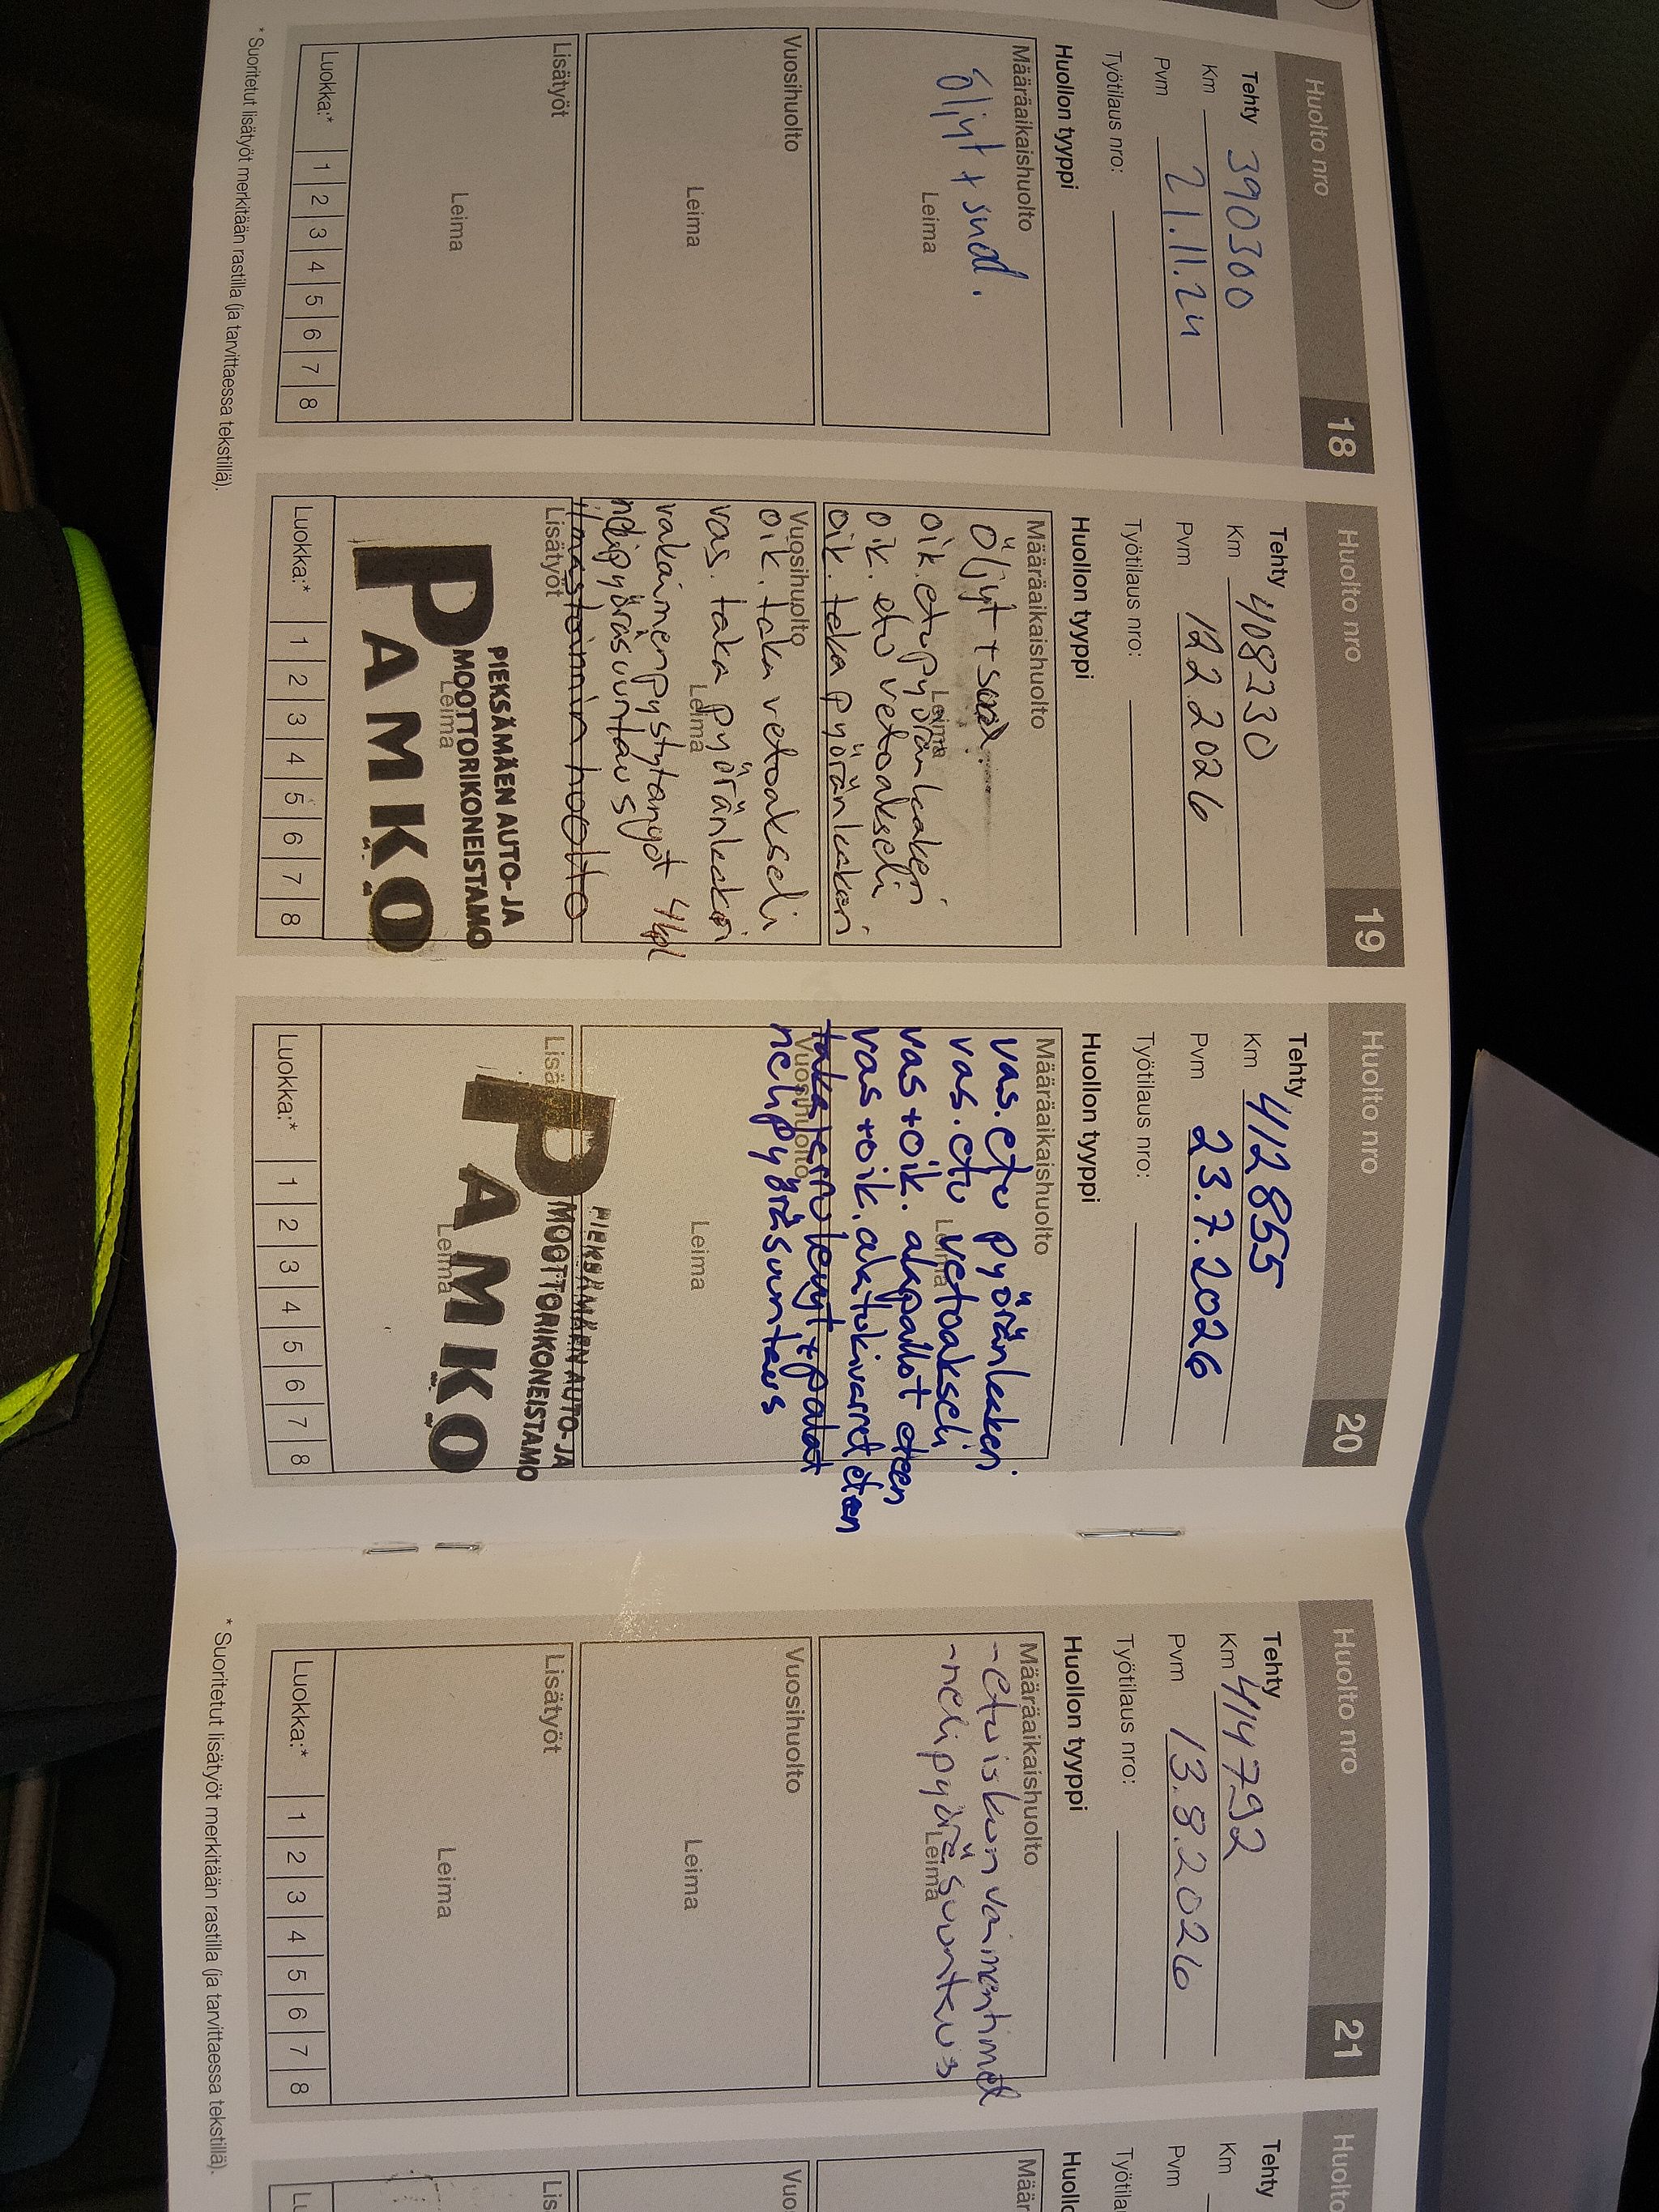 Huolto nro 18
Tehty
Km 390300
Pvm 21.11.24
Työtilaus nro:
Huollon tyyppi
Määräaikaishuolto
Öljyt + suod.
Leima
Vuosihuolto
Leima
Lisätyöt
Leima
Luokka:* 1 2 3 4 5 6 7 8
* Suoritetut lisätyöt merkitään rastilla (ja tarvittaessa tekstillä).
Huolto nro 19
Tehty
Km 408230
Pvm 12.2.2026
Työtilaus nro:
Huollon tyyppi
Määräaikaishuolto
Öljyt + suod.
Leima
oik. etupyörän laakeri
oik. etu vetoakseli
oik. taka pyöränlaakeri
Vuosihuolto
oik. taka vetoakseli
vas. taka pyöränlaakeri
Leima
vakaimenpystytangot 4kpl
nelipyöräsuuntaus
ilmastoinnin huolto
Lisätyöt
PIEKSÄMÄEN AUTO- JA
MOOTTORIKONEISTAMO
Leima
PAMKO
Luokka:* 1 2 3 4 5 6 7 8
Huolto nro 20
Tehty
Km 412855
Pvm 23.7.2026
Työtilaus nro:
Huollon tyyppi
Määräaikaishuolto
vas. etu pyöränlaakeri
vas. etu vetoakseli
Leima
vas + oik. alapallot eteen
vas + oik. alatukivarret eteen
takajarrulevyt + palat
Vuosihuolto
nelipyöräsuuntaus
Leima
PIEKSÄMÄEN AUTO- JA
MOOTTORIKONEISTAMO
PAMKO
Leima
Luokka:* 1 2 3 4 5 6 7 8
Huolto nro 21
Tehty
Km 414792
Pvm 13.8.2026
Työtilaus nro:
Huollon tyyppi
Määräaikaishuolto
-etuiskunvaimentimet
-nelipyöräsuuntaus
Leima
Vuosihuolto
Leima
Lisätyöt
Leima
Luokka:* 1 2 3 4 5 6 7 8
* Suoritetut lisätyöt merkitään rastilla (ja tarvittaessa tekstillä).
Huolto
Tehty
Km
Pvm